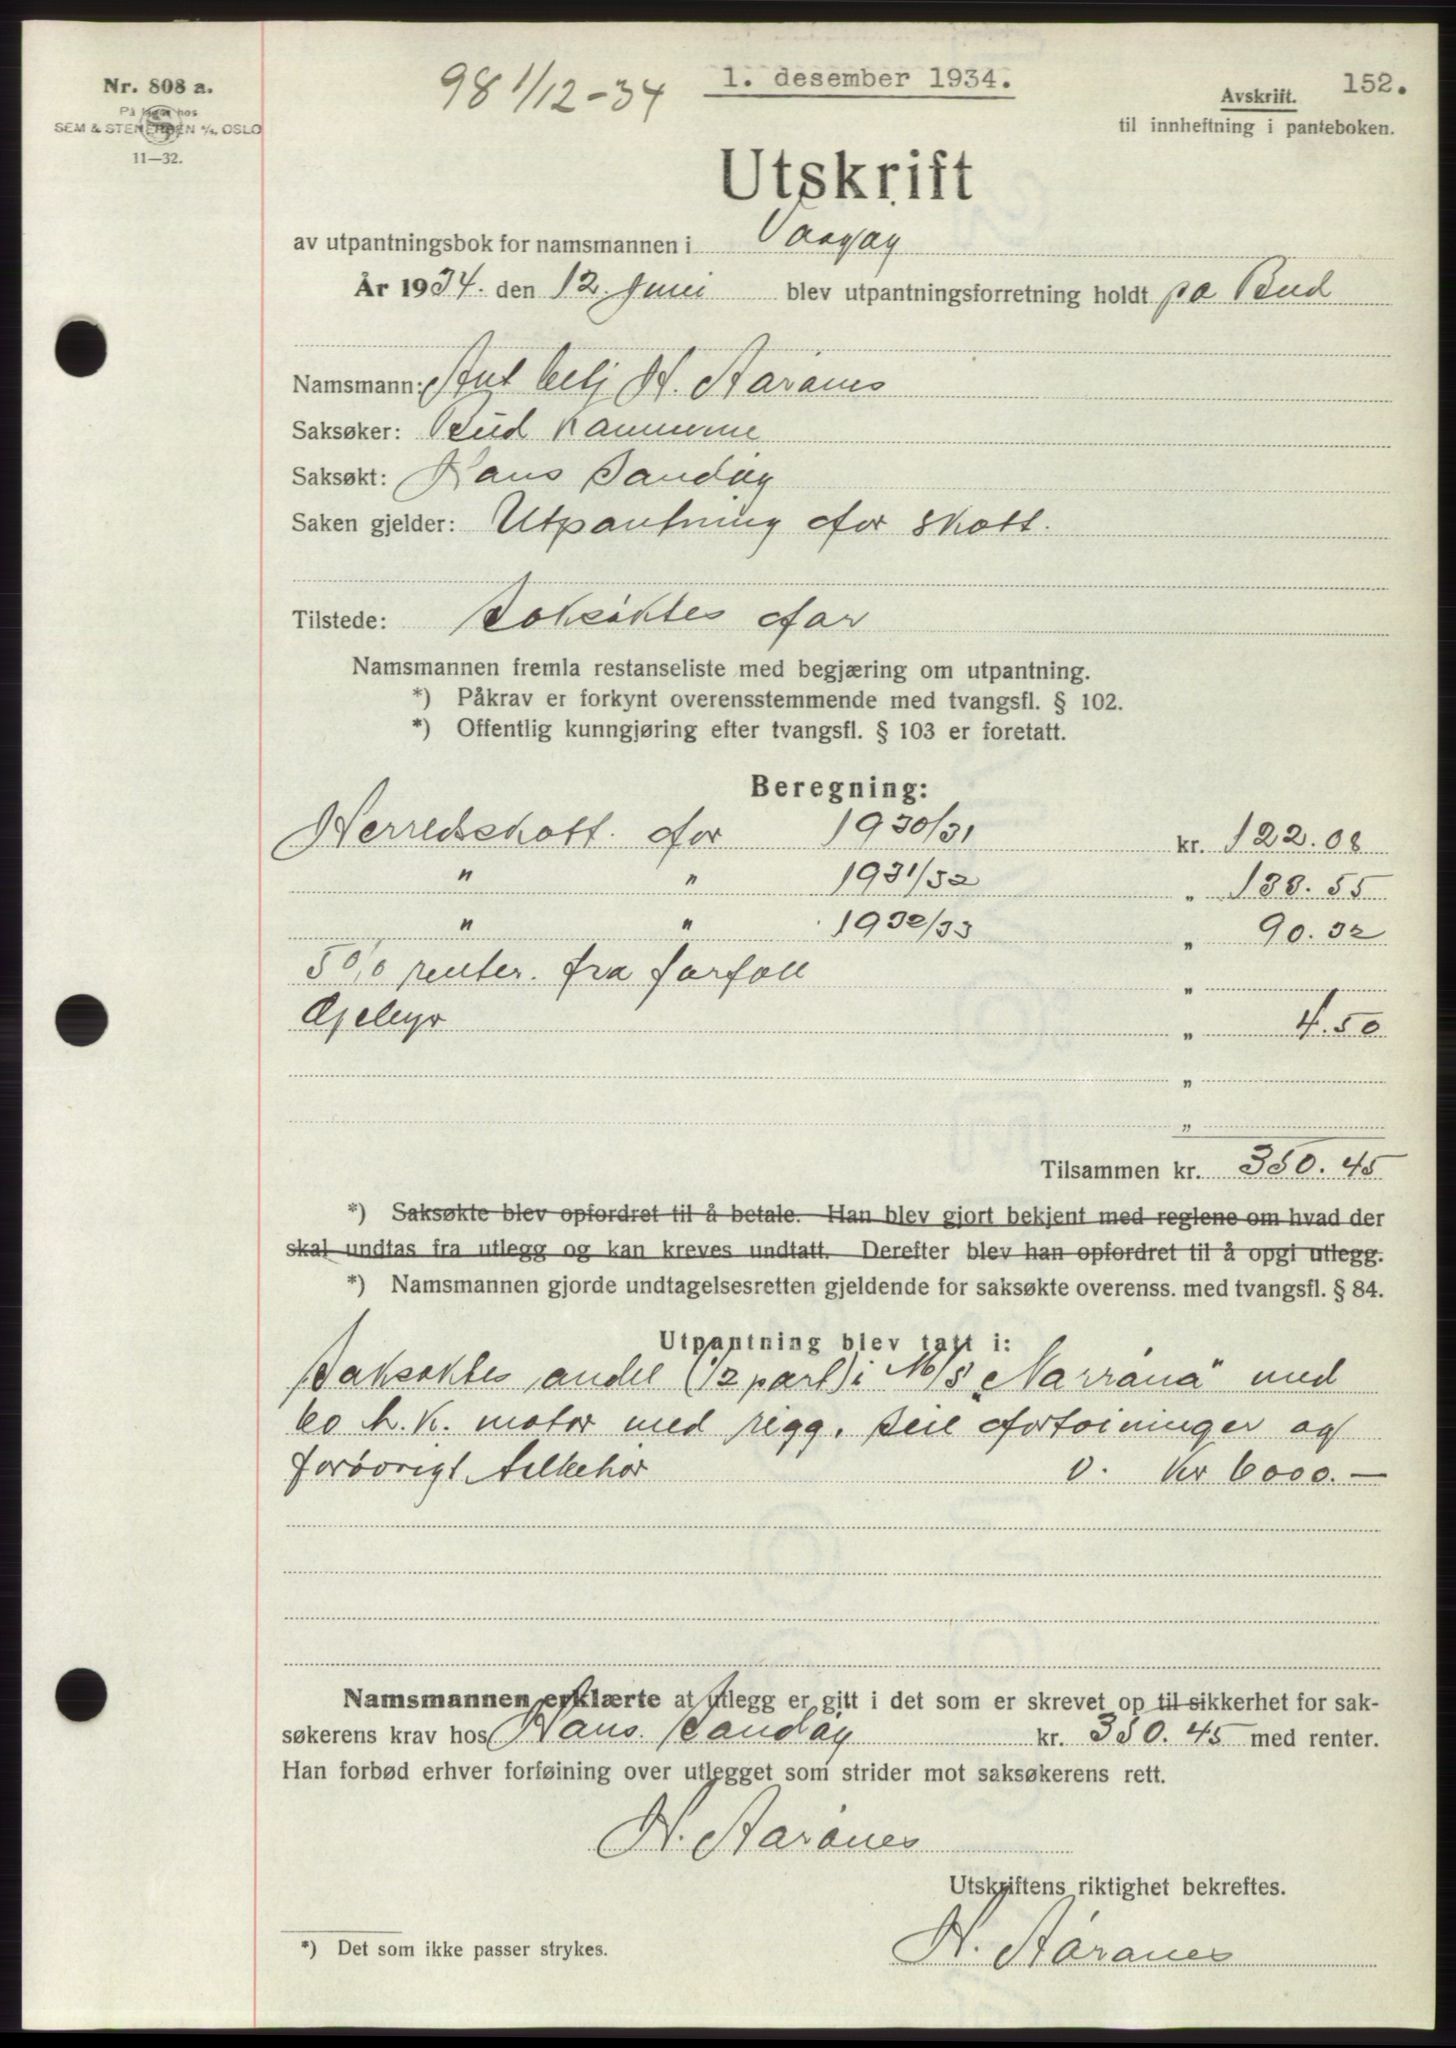 Nr. 808 a.
På lager hos
SEM & STENERSEN A/S, OSLO
11—32.
98 1/12-34
1. desember 1934.
152.
Avskrift.
til innheftning i panteboken.
Utskrift
av utpantningsbok for namsmannen i Vaagøy
År 1934. den 12. Juni blev utpantningsforretning holdt på Bud
Namsmann: Aut betj H. Aarønes
Saksøker: Bud Kommune
Saksøkt: Hans Sandøy
Saken gjelder: Utpantning for skatt.
Tilstede: Saksøktes far
Namsmannen fremla restanseliste med begjæring om utpantning.
*) Påkrav er forkynt overensstemmende med tvangsfl. § 102.
*) Offentlig kunngjøring efter tvangsfl. § 103 er foretatt.
Beregning:
Herredsskatt. for 1930/31 kr. 122.08
" " 1931/32 „ 133.55
" " 1932/33 „ 90.32
5 0/0 renter. fra forfall „
Gebyr „ 4.50
„
„
Tilsammen kr. 350.45
*) Saksøkte blev opfordret til å betale. Han blev gjort bekjent med reglene om hvad der
skal undtas fra utlegg og kan kreves undtatt. Derefter blev han opfordret til å opgi utlegg.
*) Namsmannen gjorde undtagelsesretten gjeldende for saksøkte overenss. med tvangsfl. § 84.
Utpantning blev tatt i:
Saksøktes andel (1/2 part) i M/S „Narrøna" med
60 h.k. motor med rigg. seil fortøininger og
forøvrigt tilbehør v. Kr 6000.—
Namsmannen erklærte at utlegg er gitt i det som er skrevet op til sikkerhet for sak-
søkerens krav hos Hans. Sandøy kr. 350.45 med renter.
Han forbød erhver forføining over utlegget som strider mot saksøkerens rett.
H. Aarønes
Utskriftens riktighet bekreftes.
H. Aarønes
*) Det som ikke passer strykes.